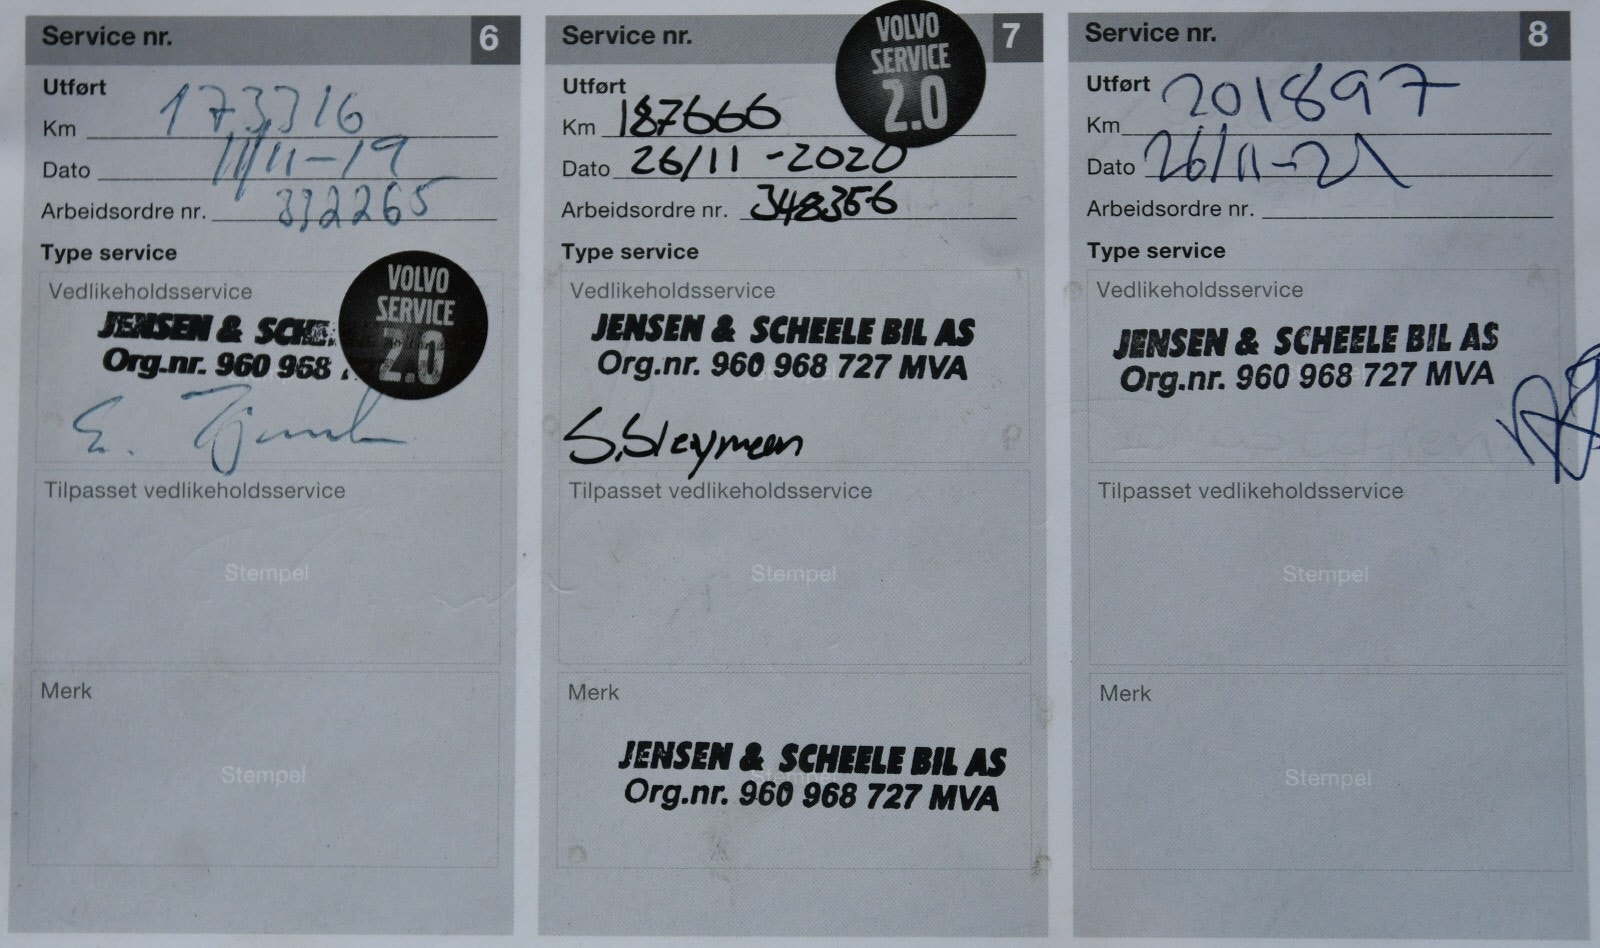 Service nr. 6
Utført
Km 173316
Dato 11/11-19
Arbeidsordre nr. 332265
Type service
Vedlikeholdsservice
VOLVO
SERVICE
2.0
JENSEN & SCHE
Org.nr. 960 968
E.
Tilpasset vedlikeholdsservice
Stempel
Merk
Stempel
Service nr. 7
VOLVO
SERVICE
2.0
Utført
Km 187666
Dato 26/11-2020
Arbeidsordre nr. 348356
Type service
Vedlikeholdsservice
JENSEN & SCHEELE BIL AS
Org.nr. 960 968 727 MVA
S.Sleymeen
Tilpasset vedlikeholdsservice
Stempel
Merk
JENSEN & SCHEELE BIL AS
Stempel
Org.nr. 960 968 727 MVA
Service nr. 8
Utført
Km 201897
Dato 26/11-21
Arbeidsordre nr.
Type service
Vedlikeholdsservice
JENSEN & SCHEELE BIL AS
Org.nr. 960 968 727 MVA
Tilpasset vedlikeholdsservice
Stempel
Merk
Stempel